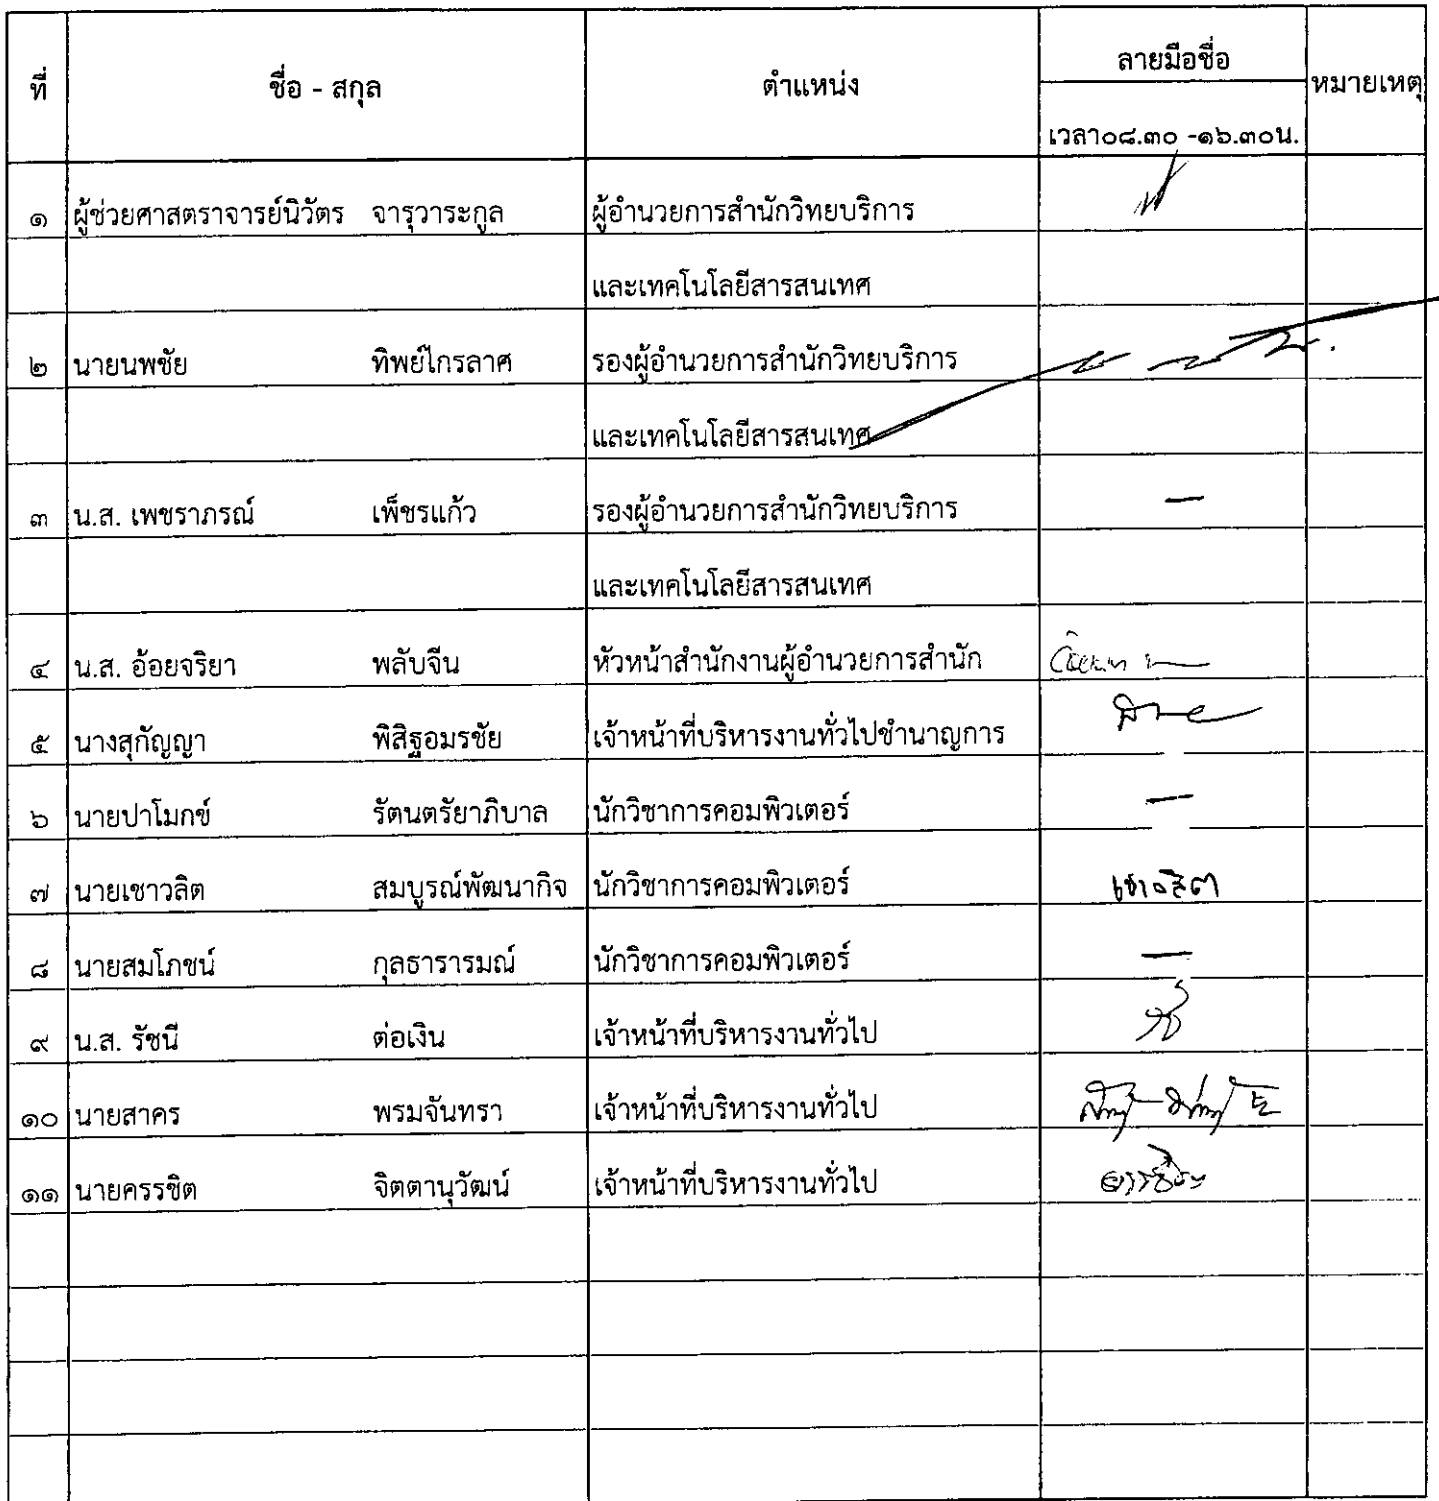 ที่ ชื่อ - สกุล ตำแหน่ง ลายมือชื่อ หมายเหตุ
เวลา๐๘.๓๐ -๑๖.๓๐น.
๑ ผู้ช่วยศาสตราจารย์นิวัตร จารุวาระกูล ผู้อำนวยการสำนักวิทยบริการ
และเทคโนโลยีสารสนเทศ
๒ นายนพชัย ทิพย์ไกรลาศ รองผู้อำนวยการสำนักวิทยบริการ
และเทคโนโลยีสารสนเทศ
๓ น.ส. เพชราภรณ์ เพ็ชรแก้ว รองผู้อำนวยการสำนักวิทยบริการ —
และเทคโนโลยีสารสนเทศ
๔ น.ส. อ้อยจริยา พลับจีน หัวหน้าสำนักงานผู้อำนวยการสำนัก
๕ นางสุกัญญา พิสิฐอมรชัย เจ้าหน้าที่บริหารงานทั่วไปชำนาญการ
๖ นายปาโมกข์ รัตนตรัยาภิบาล นักวิชาการคอมพิวเตอร์ —
๗ นายเชาวลิต สมบูรณ์พัฒนากิจ นักวิชาการคอมพิวเตอร์ เชาวลิต
๘ นายสมโภชน์ กุลธารารมณ์ นักวิชาการคอมพิวเตอร์ —
๙ น.ส. รัชนี ต่อเงิน เจ้าหน้าที่บริหารงานทั่วไป
๑๐ นายสาคร พรมจันทรา เจ้าหน้าที่บริหารงานทั่วไป
๑๑ นายครรชิต จิตตานุวัฒน์ เจ้าหน้าที่บริหารงานทั่วไป